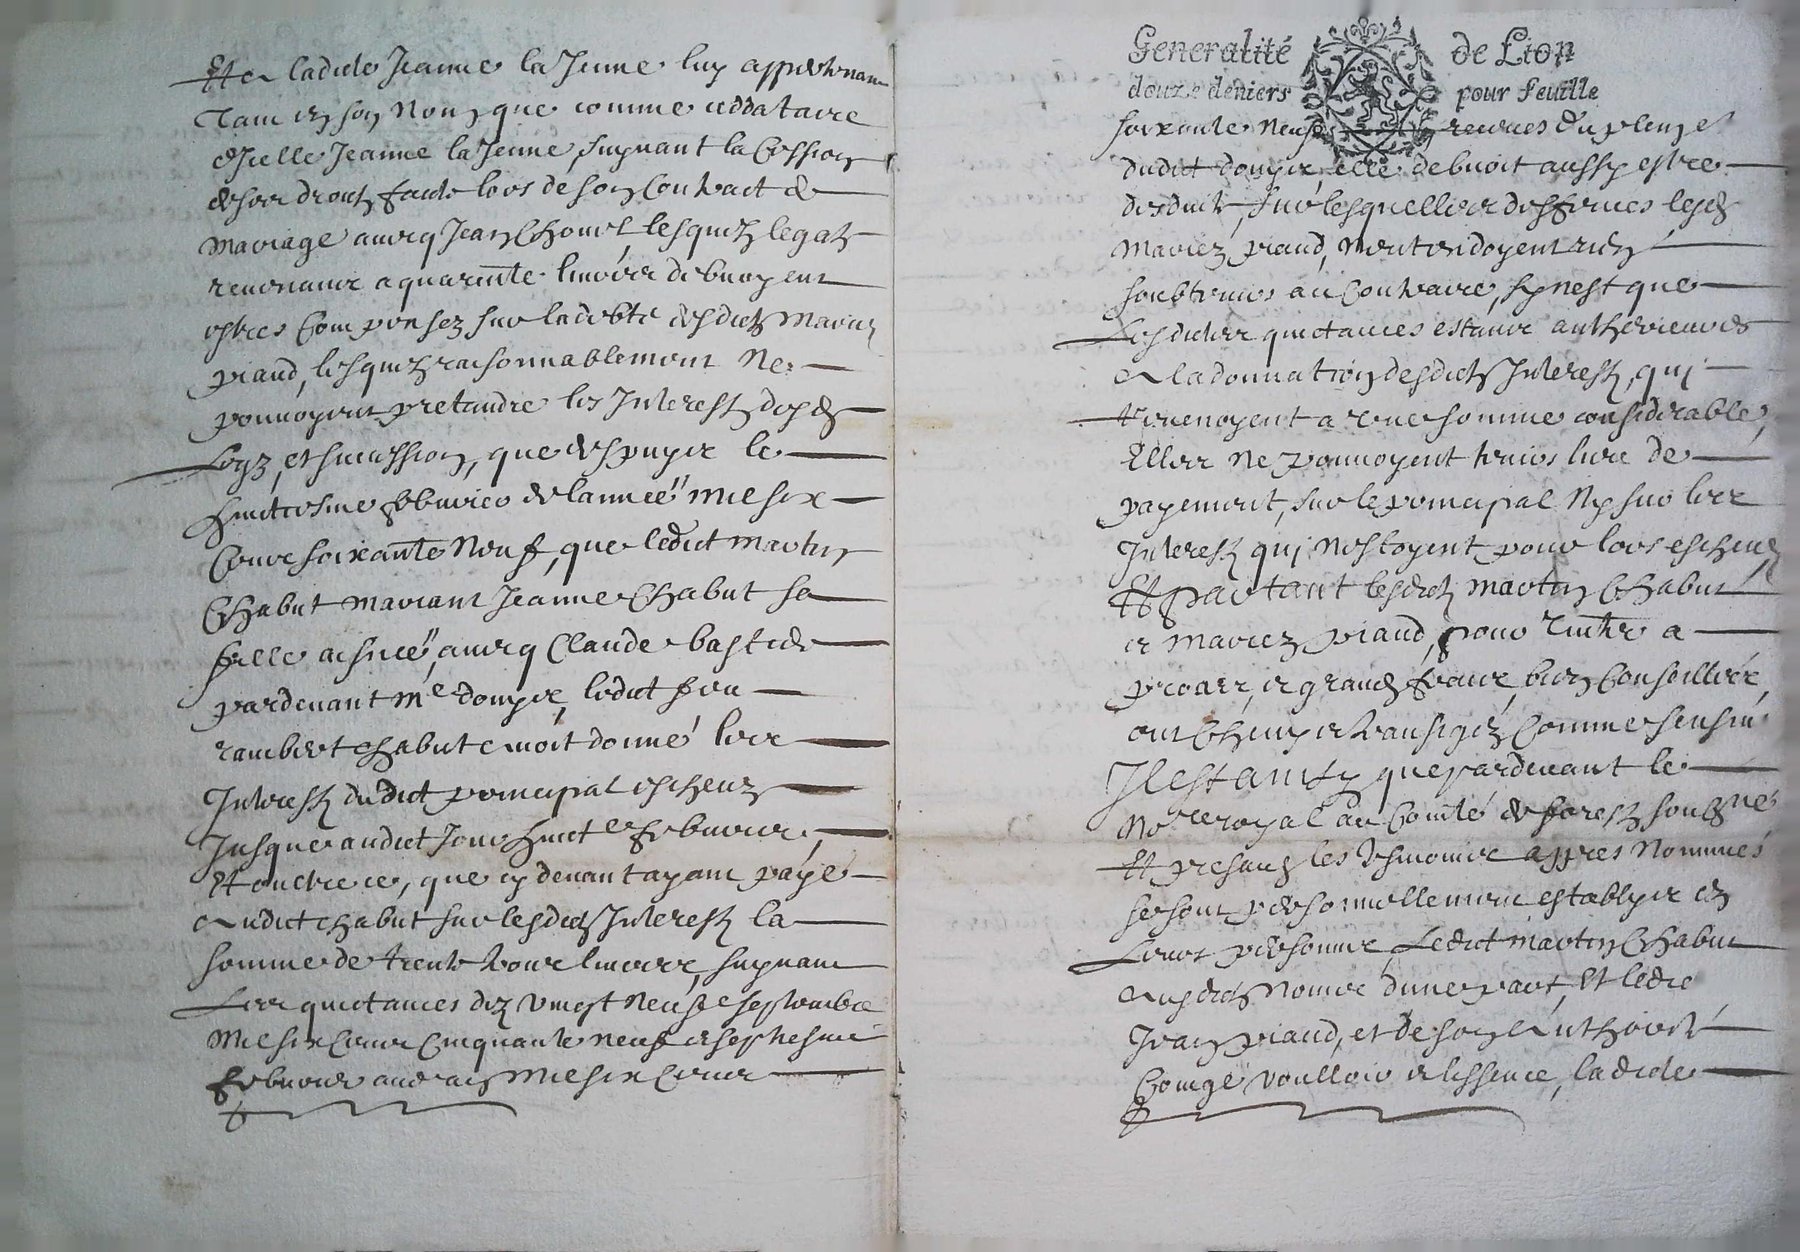 Et a ladicte Jeanne la Jeune luy appartenant
Tant en son Nom que comme ceddataire
d'Icelle Jeanne la Jeune, suyvant la Cession
de ses droitz faicte lors de son Contract de
Mariage avecq Jean Chovet, lesquelz legatz
revenants a quarente livres debvoyent
estres Compensez sur la debte desdictz Mariez
piaud, lesquelz raisonnablement Ne
pouvoyent pretandre les Interestz desd
Logz, et succession, que despuys le
huictiesme febvrier de lannée mil six
Centz soixante Neuf, que ledict Martin
Chabut mariant Jeanne Chabut sa
fille aisnée, avecq Claude bastide
pardevant Me dompys, ledict feu
rambert chabut avoit donné les
Interestz dudict principal escheuz
Jusques audict Jour huict e febvrier,
Et oultre ce, que cy devant ayant payé
Audict chabut sur lesdictz Interestz la
somme de trente livres, suyvant
Les quictances des vingt Neuf septembre
Mil six Centz Cinquante neuf et septiesme
febvrier mil six Centz
Generalité de Lion
douze deniers pour feuille
soixante Neuf receues du
dudict dompys, elle debvoit aussy estre
desduite, sur lesquelles lesd
Mariez piaud, Mentendoyent rien
soubtenir au Contraire, sy nest que
Lesdictes quictances estants antherieures
A la donnation desdictz Interestz, qui
revenoyent a une somme considerable,
Elles Ne pouvoyent tenir lieu de
payement, sur le principal Ny sur les
Interestz qui Nestoyent pour lors escheuz
Et partant lesdictz Martin Chabut
et Mariez piaud, pour a
proces, et grandz fraiz, bien Conseillés,
ont Comme sensuit
Il est ainsy que pardevant le
No.re royal au Comté de forestz soubzne
Et presantz les tesmoins appres Nommés
se sont personnellement establys en
Leurs personnes Ledict Martin Chabut
Ausdictz Noms dune part, Et ledict
Jean piaud, et de son Authorité
Congé voulloir et lissence, ladicte